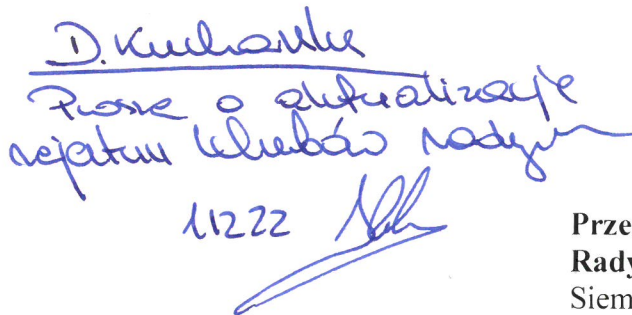 D. Kucharska
Proszę o aktualizację
rejestru klubów radnych
11222
Prze
Rady
Siem